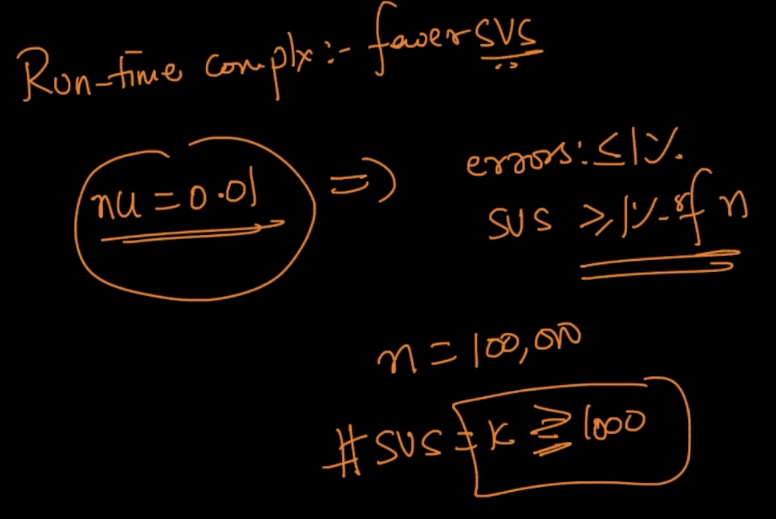 Run-time complx:- fewer SVS
nu = 0.01 => errors: ≤ 1%
SVS ≥ 1% of n
n = 100,000
#SVS = k ≥ 1000